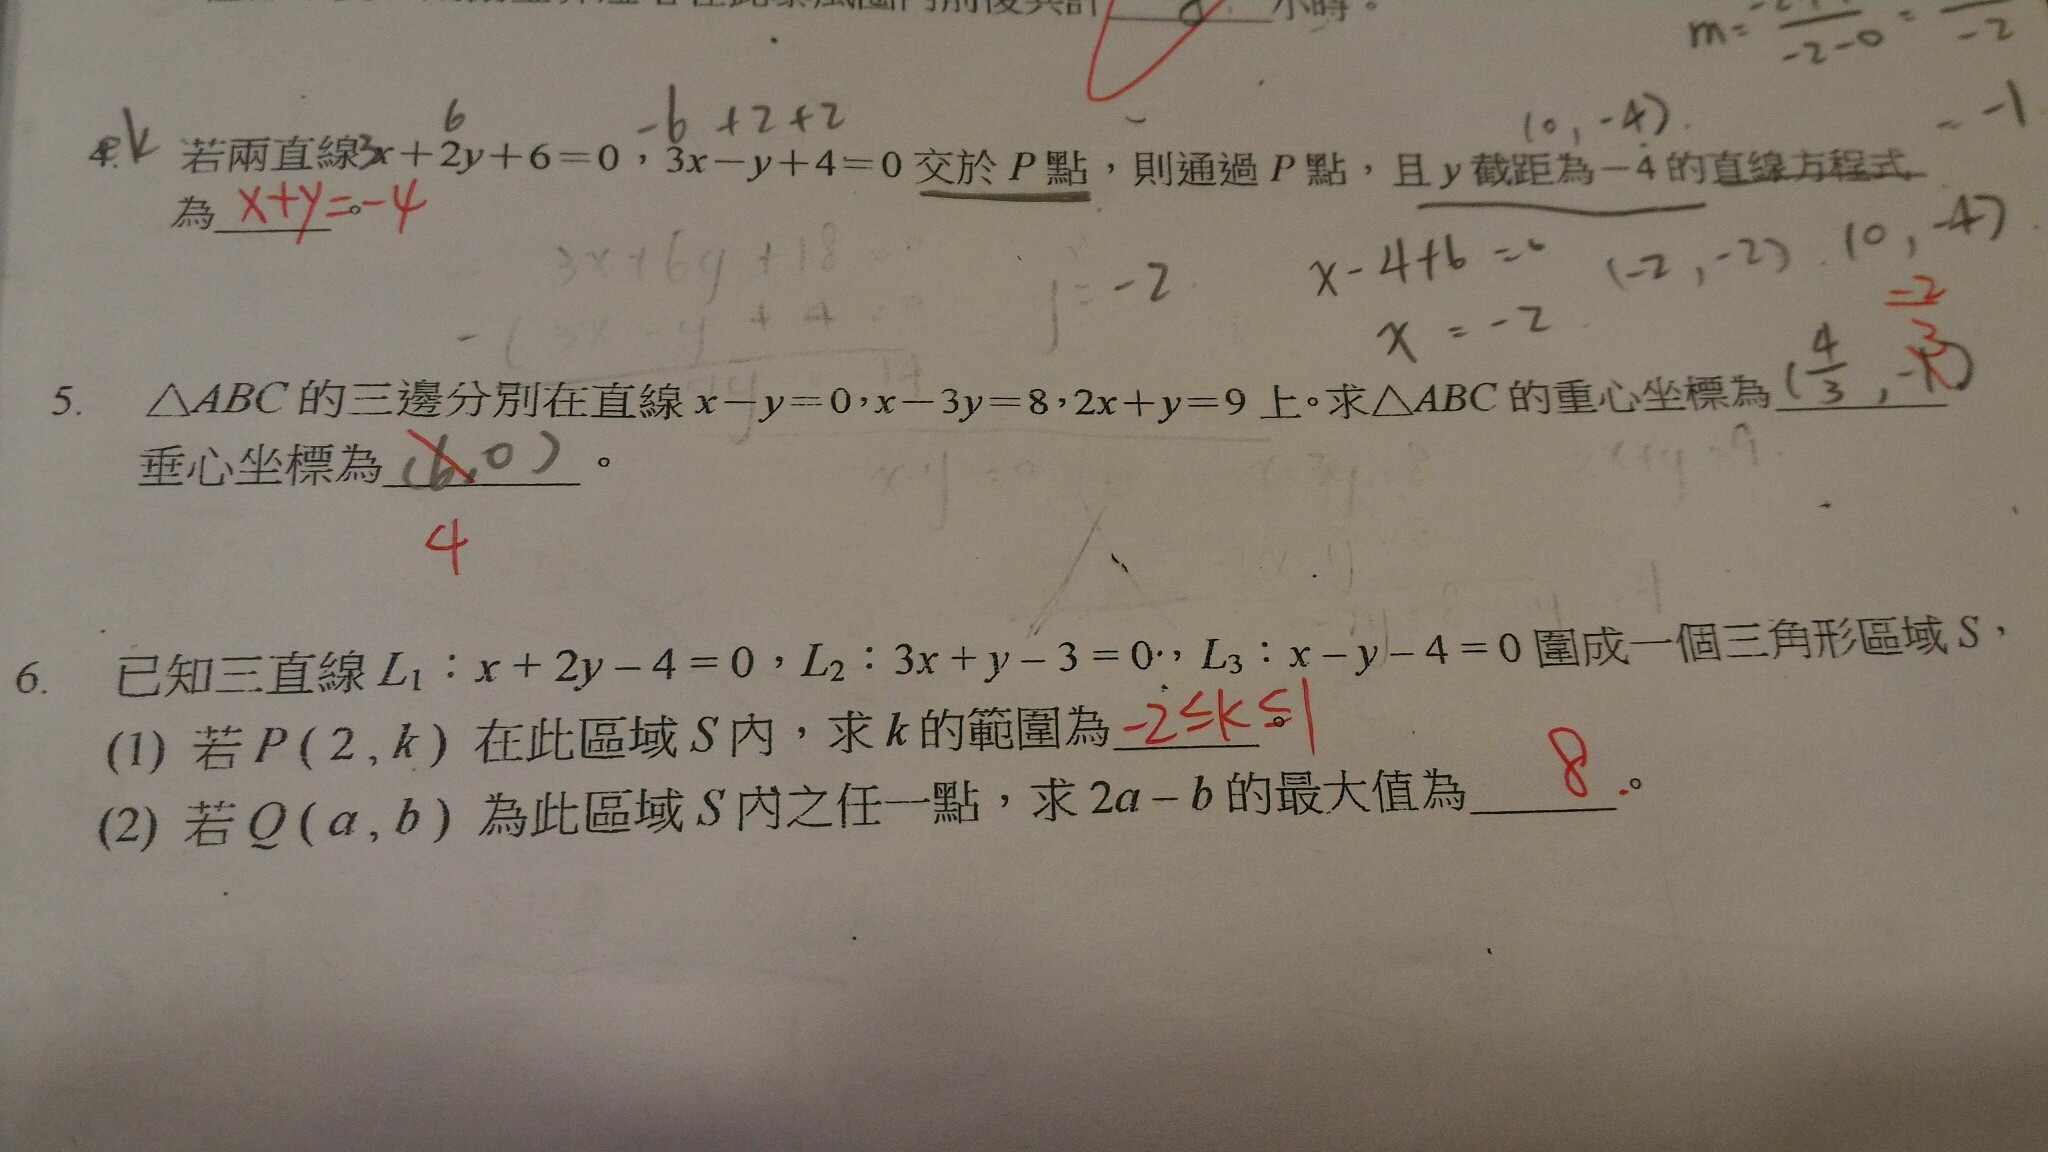 8 小時。
m= = -2-0 -2
6 -6 +2+2 (0,-4). = -1
4. k 若兩直線3x+2y+6=0,3x-y+4=0交於P點,則通過P點,且y截距為-4的直線方程式
為 x+y=-4 。
3x+6y+18=0 y=-2 x-4+6=0 (-2,-2) (0,-4)
-(3x-y+4=0 x=-2
-2
3
5. △ABC的三邊分別在直線x-y=0,x-3y=8,2x+y=9上。求△ABC的重心坐標為(4/3,-1)
垂心坐標為(6,0)。
x-y=0 x-3y=8 2x+y=9
4
6. 已知三直線L₁:x+2y-4=0,L₂:3x+y-3=0,L₃:x-y-4=0圍成一個三角形區域S,
(1) 若P(2,k)在此區域S內,求k的範圍為-2≤k≤1。
(2) 若Q(a,b)為此區域S內之任一點,求2a-b的最大值為 8 。